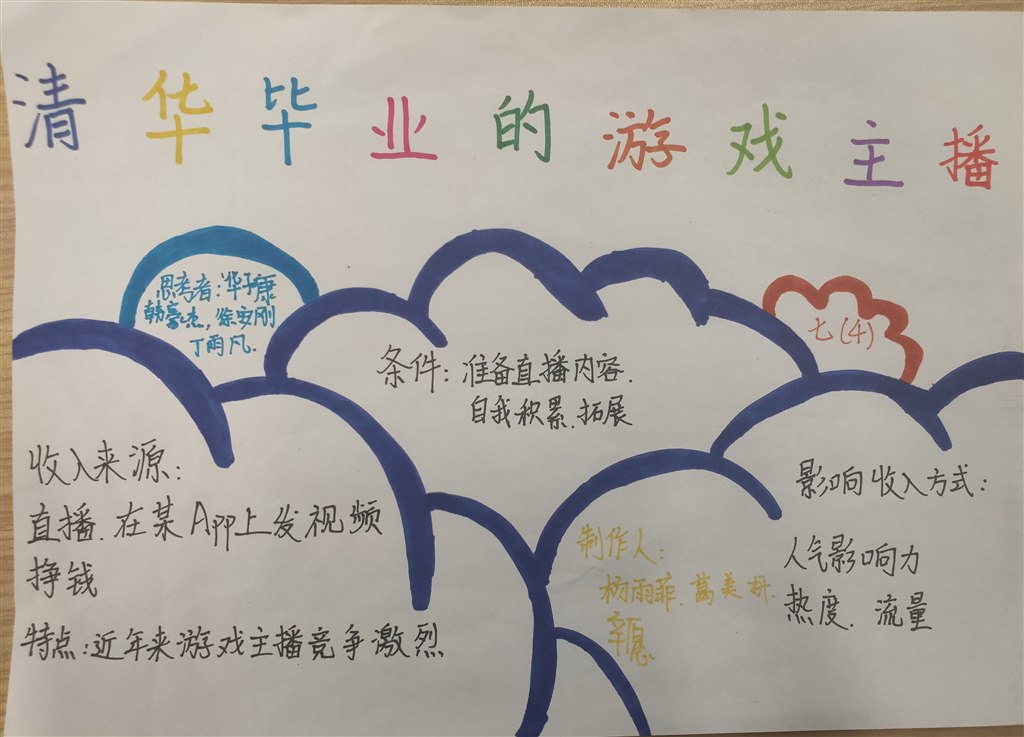 清华毕业的游戏主播
思考者:华子康
韩豪杰,徐安刚
丁雨凡.
七(4)
条件:准备直播内容.
自我积累.拓展
收入来源:
直播.在某App上发视频
挣钱
特点:近年来游戏主播竞争激烈
影响收入方式:
人气影响力
热度.流量
制作人:
杨雨菲.萬美妍.